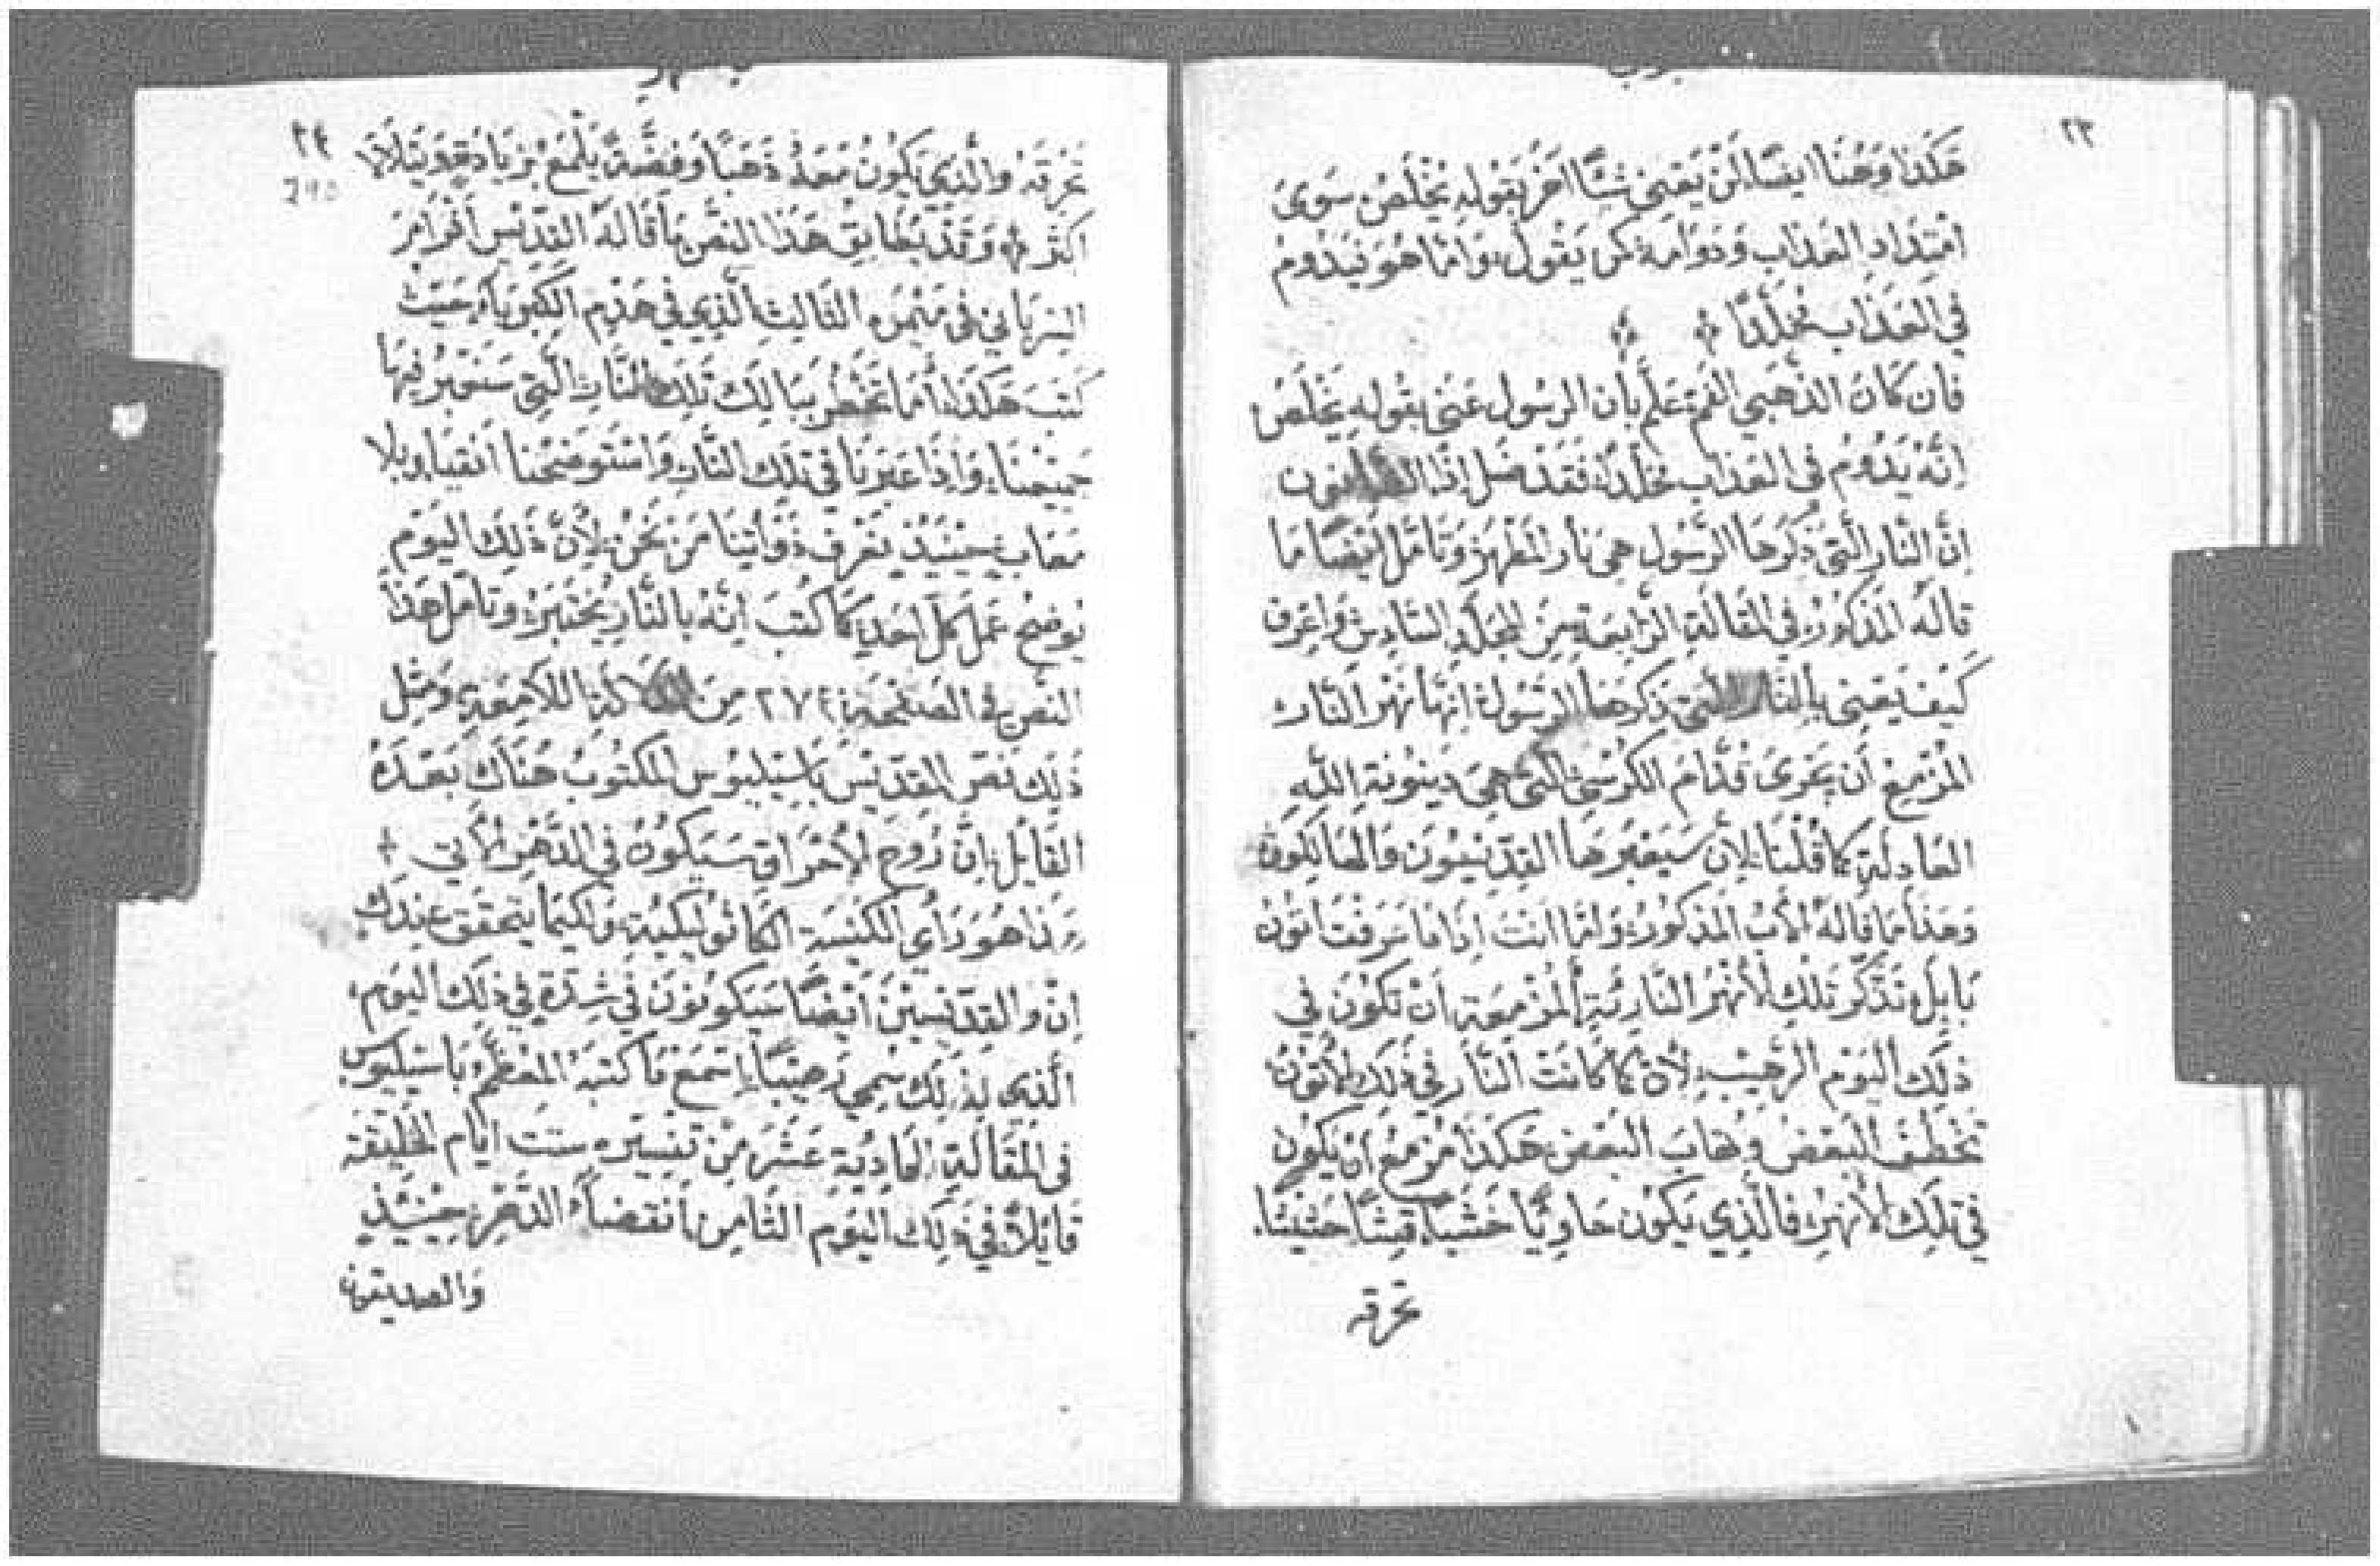 ٢٣
هَكَذا وَهُنَا ايضًا لَنْ يَعْني شيًا اخَرْ بقَولِهِ يُخْلَصْ سَوىَ
امْتِدَادِ العَذابِ وَدَوَامَهُ كمن يَقُول وَامّا هُوَ فَيَدُومْ
في العَذَابِ مُخَلَّدًا
فان كَانَ الذَهَبي الفَمّ عَلَّمْ بأن الرسُول عَنَى بقَولِهِ يَخْلَصْ
انَّهُ يَدُومُ في العَذابِ مُخلَّدًا فَقَدْ ضَل إذًا
انَّ النَّار الَّتي ذَكَرهَا الرَسُول هِيَ نَار المَطْهَر وَتَامَّل ايْضًا مَا
قالَه المَذكورُ في المَقَالَةِ الرَّابِعَةِ مِنَ المجَلَّدِ السَّادِسْ وَاعْرِف
كَيْفَ يَعني بالنَّار التي ذَكرهَا الرَسُول انَّها نَهْر النَّار
المُزْمِعْ أَن يَجْرىَ قُدَّامَ الكُرْسي التي هِيَ دَيْنُونَةِ اللَّهِ
العَادِلَةِ كما قُلْنَا لأِنْ سَيَعْبُرهَا القِدّيسيُونَ وَالهَالِكُونْ
وَهَذا مَا قَالَهُ الأبُ المَذكُورُ وَامَّا انْتَ اذَا مَا عَرفْتَ اتُونْ
بَابِلْ تَذَكَّر تلكِ الأنْهُرْ النَّاريَّةِ المُزْمِعَةِ انْ تَكُونَ في
ذلِكَ اليَوْم الرَهِيْبِ لأِنْ كَمَا كَانَتْ النَّار في ذَلِكَ الأتُونْ
تَخْطَفْ البَعْض وَتَهابْ البَعْض هَكَذا مُزْمِعْ أنْ يَكُونْ
في تلكِ الأنْهُرْ فالَّذي يَكُون حَاوِيًا خَشَبًا قَشًّا حَشيْشًا
تحرقه
٢٤
تَحْرقَهُ والَّذي يَكُونُ مَعَهُ ذَهَبًا وَفِضَّةً يَلْمَعْ بزيَادَةٍ وَيَتَلألأ
اكثَر وَقَدْ يُطَابِقْ هَذا النَصّ مَا قَالَهُ القِدّيْس أفْرَامَ
السِرْيَاني في مَيْمَرهِ الثَالِثِ الَّذي في هَدْمِ الكِبْريَاءِ حَيْثُ
كَتَبَ هَكَذا أمَا تَخْطُرْ ببَالِكَ تلكِ النَّار الَّتي سَنَعبُرْ فيهَا
جَمِيْعُنَا وَإذَا عَبَرنَا في تلكِ النَّارِ وَاسْتَوضَحْنَا انقِيَاء بلا
مَعَاب حِيْنَئِذٍ نَعْرف ذَوَاتِنَا مَنْ نَحْنُ لأِنَّ ذَلِكَ اليَوْم
يُوضِحْ عَمَلَ كلّ احَدٍ كمَا كُتِبَ انَّهُ بالنَّارِ يُخْتَبَرْ وتَامَّل هَذا
النَصّ في الصَفْحَةِ ٢٧٤ مِنَ
ذَلِكَ نَصّ القِدّيْس باسِيْلِيُوس المكتُوبْ هُنَاكَ بَعْدَهُ
القَائِل إنَّ رُوحَ الأحْرَاقِ سَيَكُونُ في الدَّهْرِ الأتي
هَذا هُوَ رَأي الكَنِيْسَةِ الكَاثُوليكيَّةِ وَلكَيْمَا يَتَحَقَّق عِنْدَكَ
انْ والقِدّيسِيْنَ أَيْضًا سَيَكونُونَ في شِدَّةٍ في ذلِكَ اليَوْمِ
الَّذي لِذَلِكَ سُمّيَ رَهِيْبًا إسْتَمِعْ مَا كَتَبَهُ المعَظَّمْ باسِيْلِيُوسْ
في المَقَالَةِ الحَادِيَة عَشَرَ مِنْ تَفْسِيرهِ ستَّتَ ايَّام الخَلِيْقَة
قَائِلاً في ذَلِكَ اليَوَمِ الثَّامِنْ انقضَاء الدَّهرِ حِيْنَئِذٍ
وَالصديقون